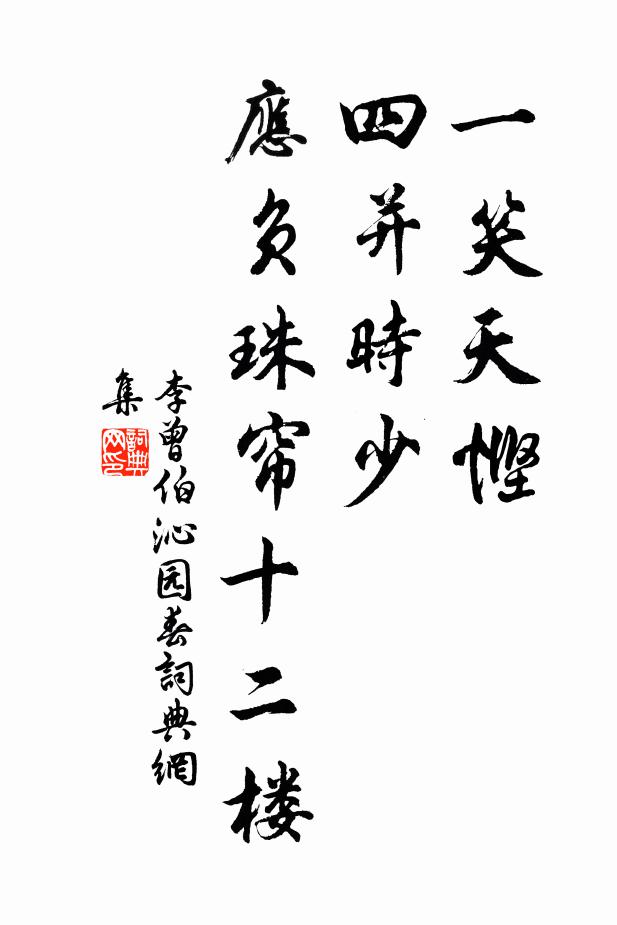 一笑天慳
四并時少
應負珠帘十二楼
李曾伯沁园春詞典網
集
詞典网印